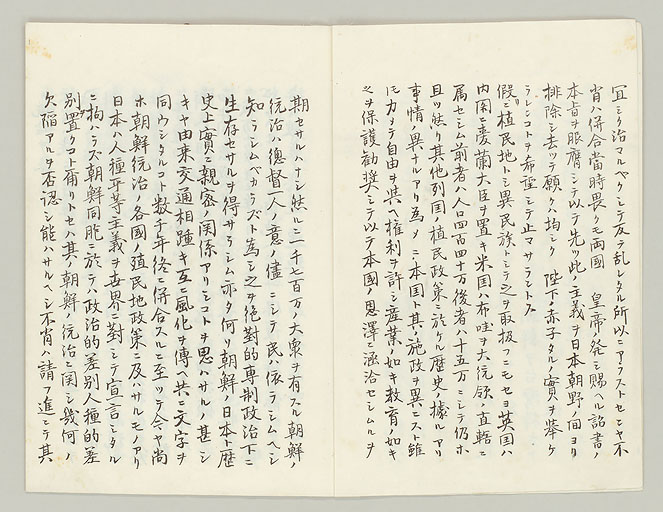 宜シク治マルベクシテ反テ乱レタル所以ニアラストセンヤ不
肖ハ併合当時畏クモ両国　皇帝ノ発シ賜ヘル詔書ノ
本旨ヲ服膺シテ以テ先ツ此ノ主義ヲ日本朝野ノ間ヨリ
排除シ去ツテ願クハ均シク　陛下ノ赤子タルノ実ヲ挙ケ
ラレンコトヲ希望シテ止マサラントス
仮ニ植民地トシ異民族トシテ之ヲ取扱フニモセヨ英国ハ
内閣ニ愛蘭大臣ヲ置キ米国ハ布哇ヲ大統領ノ直轄ニ
属セシム前者ハ人口四百四十万後者ハ十五万ニシテ仍ホ
且ツ然リ其他列国ノ植民政策ニ於ケル歴史ノ據ルアリ
事情ノ異ナルアリ為メニ本国ト其ノ施政ヲ異ニスト雖
モ力メテ自由ヲ與ヘ権利ヲ許シ産業ノ如キ教育ノ如キ
之ヲ保護勧奨シテ以テ本国ノ恩澤ニ涵洽セシムルヲ
期セサルハナシ然ルニ二千七百万ノ大衆ヲ有スル朝鮮ノ
統治ハ総督一人ノ意ノ儘ニシテ民ハ依ラシムヘシ
知ラシムベカラズト為シ之ヲ絶対的専制政治下ニ
生存セサルヲ得サラシム亦タ何ソ朝鮮ノ日本ト歴
史上実ニ親密ノ関係アリシコトヲ思ハサルノ甚シ
キヤ由来交通相踵キ互ニ風化ヲ傳ヘ共ニ文字ヲ
同ウシタルコト数千年終ニ併合スルニ至ツテ今ヤ尚
ホ朝鮮統治ノ各国ノ殖民地政策ニ及ハサルモノアリ
日本ハ人種平等主義ヲ世界ニ対シテ宣言シタル
ニ拘ハラズ朝鮮同胞ニ於テハ政治的差別人種的差
別ヲ置クコト爾リトセハ其ノ朝鮮ノ統治ニ関シ幾何ノ
欠陥アルヲ否認シ能ハサルヘシ不肖ハ請フ進ンテ其